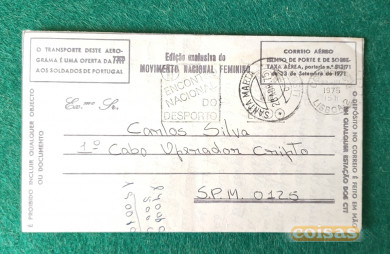 O TRANSPORTE DESTE AERO-
GRAMA É UMA OFERTA DA TAP
AOS SOLDADOS DE PORTUGAL
Edição exclusiva do
MOVIMENTO NACIONAL FEMININO
CORREIO AÉREO
ISENTO DE PORTE E DE SOBRE-
TAXA AÉREA,
de 23 de Setembro de 1971
ENCONTRO
NACIONAL
DO
DESPORTO
SANTA MARTA
1975
LISBOA
Ex.mo Sr.
Carlos Silva
1º Cabo Operador Cripto
S.P.M. 0125
É PROIBIDO INCLUIR QUALQUER OBJECTO
OU DOCUMENTO
O DEPÓSITO NO CORREIO É FEITO EM MÃO
EM QUALQUER ESTAÇÃO DOS CTT
coisas